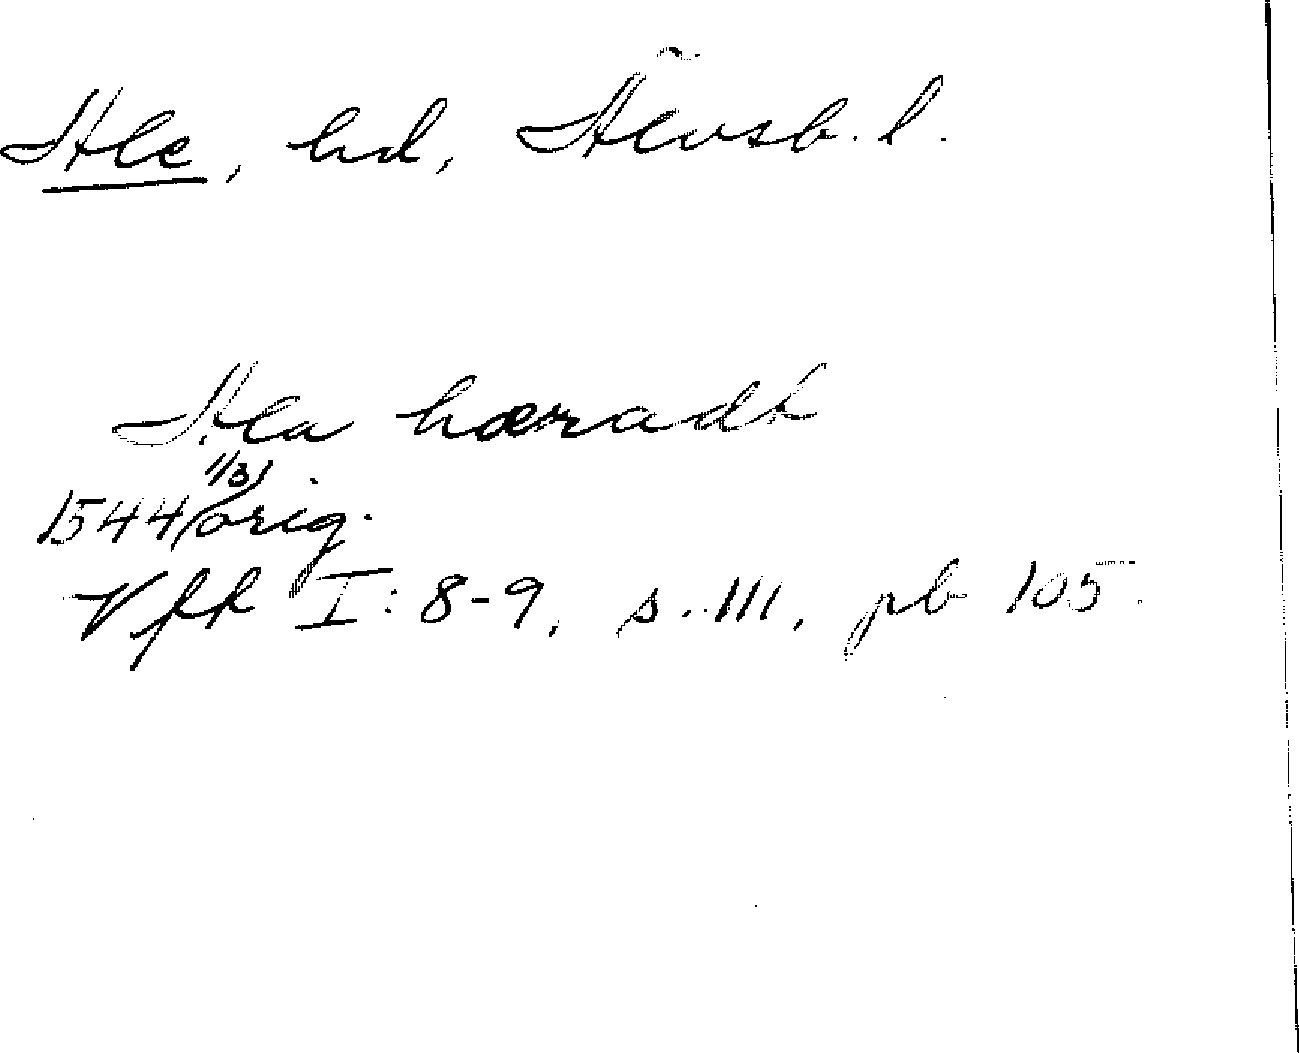 Ale, hd, Älvsb. l.
Ala hæradt
1544 1/3 orig.
Vfft I: 8-9, s. 111, pb 105.